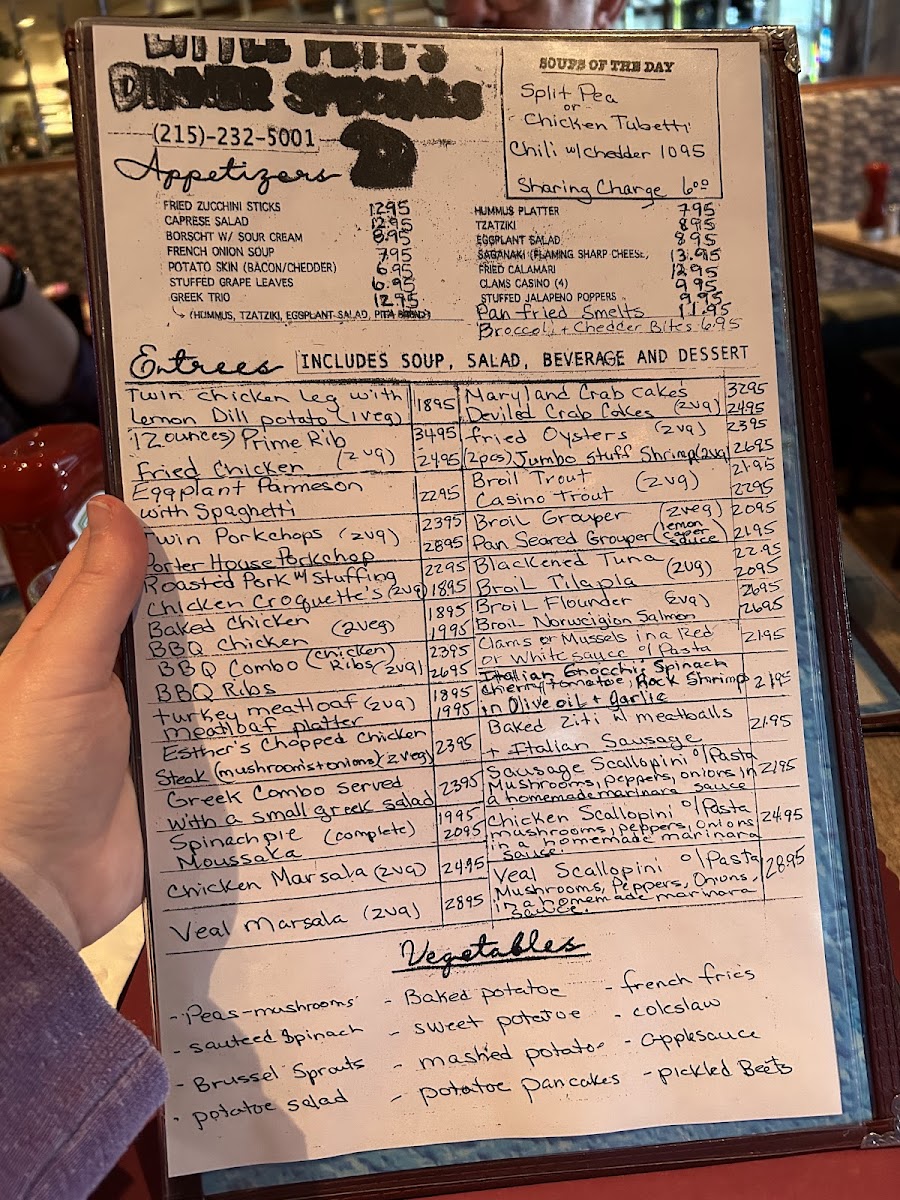 LITTLE PETE'S
DINNER SPECIALS
(215)-232-5001
SOUPS OF THE DAY
Split Pea
or
Chicken Tubetti
Chili w/chedder 1095
Sharing Charge 6.00
Appetizers
FRIED ZUCCHINI STICKS 12.95
CAPRESE SALAD 12.95
BORSCHT W/ SOUR CREAM 8.95
FRENCH ONION SOUP 7.95
POTATO SKIN (BACON/CHEDDER) 6.95
STUFFED GRAPE LEAVES 6.95
GREEK TRIO 12.95
(HUMMUS, TZATZIKI, EGGPLANT SALAD, PITA BREAD)
HUMMUS PLATTER 7.95
TZATZIKI 8.95
EGGPLANT SALAD 8.95
SAGANAKI (FLAMING SHARP CHEESE, 13.95
FRIED CALAMARI 12.95
CLAMS CASINO (4) 9.95
STUFFED JALAPENO POPPERS 9.95
Pan fried Smelts 11.95
Broccoli + Chedder Bites 6.95
Entrees INCLUDES SOUP, SALAD, BEVERAGE AND DESSERT
Twin chicken Leg with
Lemon Dill potato (1veg) 1895
12ounces) Prime Rib 3495
Fried Chicken (2vg) 2495
Eggplant Parmeson
with Spaghetti 2295
Twin Porkchops (2vg) 2395
Porter House Porkchop 2895
Roasted Pork w/ Stuffing 2295
Chicken Croquette's (2vg) 1895
Baked Chicken 1895
BBQ Chicken (2veg) 1995
BBQ Combo (chicken Ribs) (2vg) 2395
BBQ Ribs 2695
turkey meatloaf (2vg) 1895
meatloaf platter 1995
Esther's Chopped Chicken
Steak (mushrooms+onions) (2veg) 2395
Greek Combo served
with a small greek salad 2395
Spinach pie (complete) 1995
Moussaka 2095
Chicken Marsala (2vg) 2495
Veal Marsala (2vg) 2895
Maryland Crab cakes 3295
Deviled Crab Cakes (2vg) 2495
fried Oysters (2vg) 2395
(2pcs) Jumbo Stuff Shrimp (2vg) 2695
Broil Trout 2195
Casino Trout (2vg) 2295
Broil Grouper (2veg) 2095
Pan Seared Grouper (lemon caper sauce) 2195
Blackened Tuna 2295
Broil Tilapia (2vg) 2095
Broil Flounder (2vg) 2695
Broil Norwigion Salmon 2695
Clams or Mussels in a Red
or white sauce o/Pasta 2195
Italian Gnocchi, Spinach
cherry tomatoe, Rock Shrimp
in Olive oil + garlic 2195
Baked Ziti w/ meatballs
+ Italian Sausage 2195
Sausage Scallopini o/Pasta
Mushrooms, peppers, onions in
a homemade marinara sauce 2195
Chicken Scallopini o/Pasta
mushrooms, peppers, onions
in a homemade marinara
sauce. 2495
Veal Scallopini o/Pasta
Mushrooms, Peppers, Onions,
in a homemade marinara
sauce. 2895
Vegetables
- Peas-mushrooms - Baked potatoe - french fries
- sauteed Spinach - sweet potatoe - coleslaw
- Brussel Sprouts - mashed potatoe - applesauce
- potatoe salad - potatoe pancakes - pickled Beets